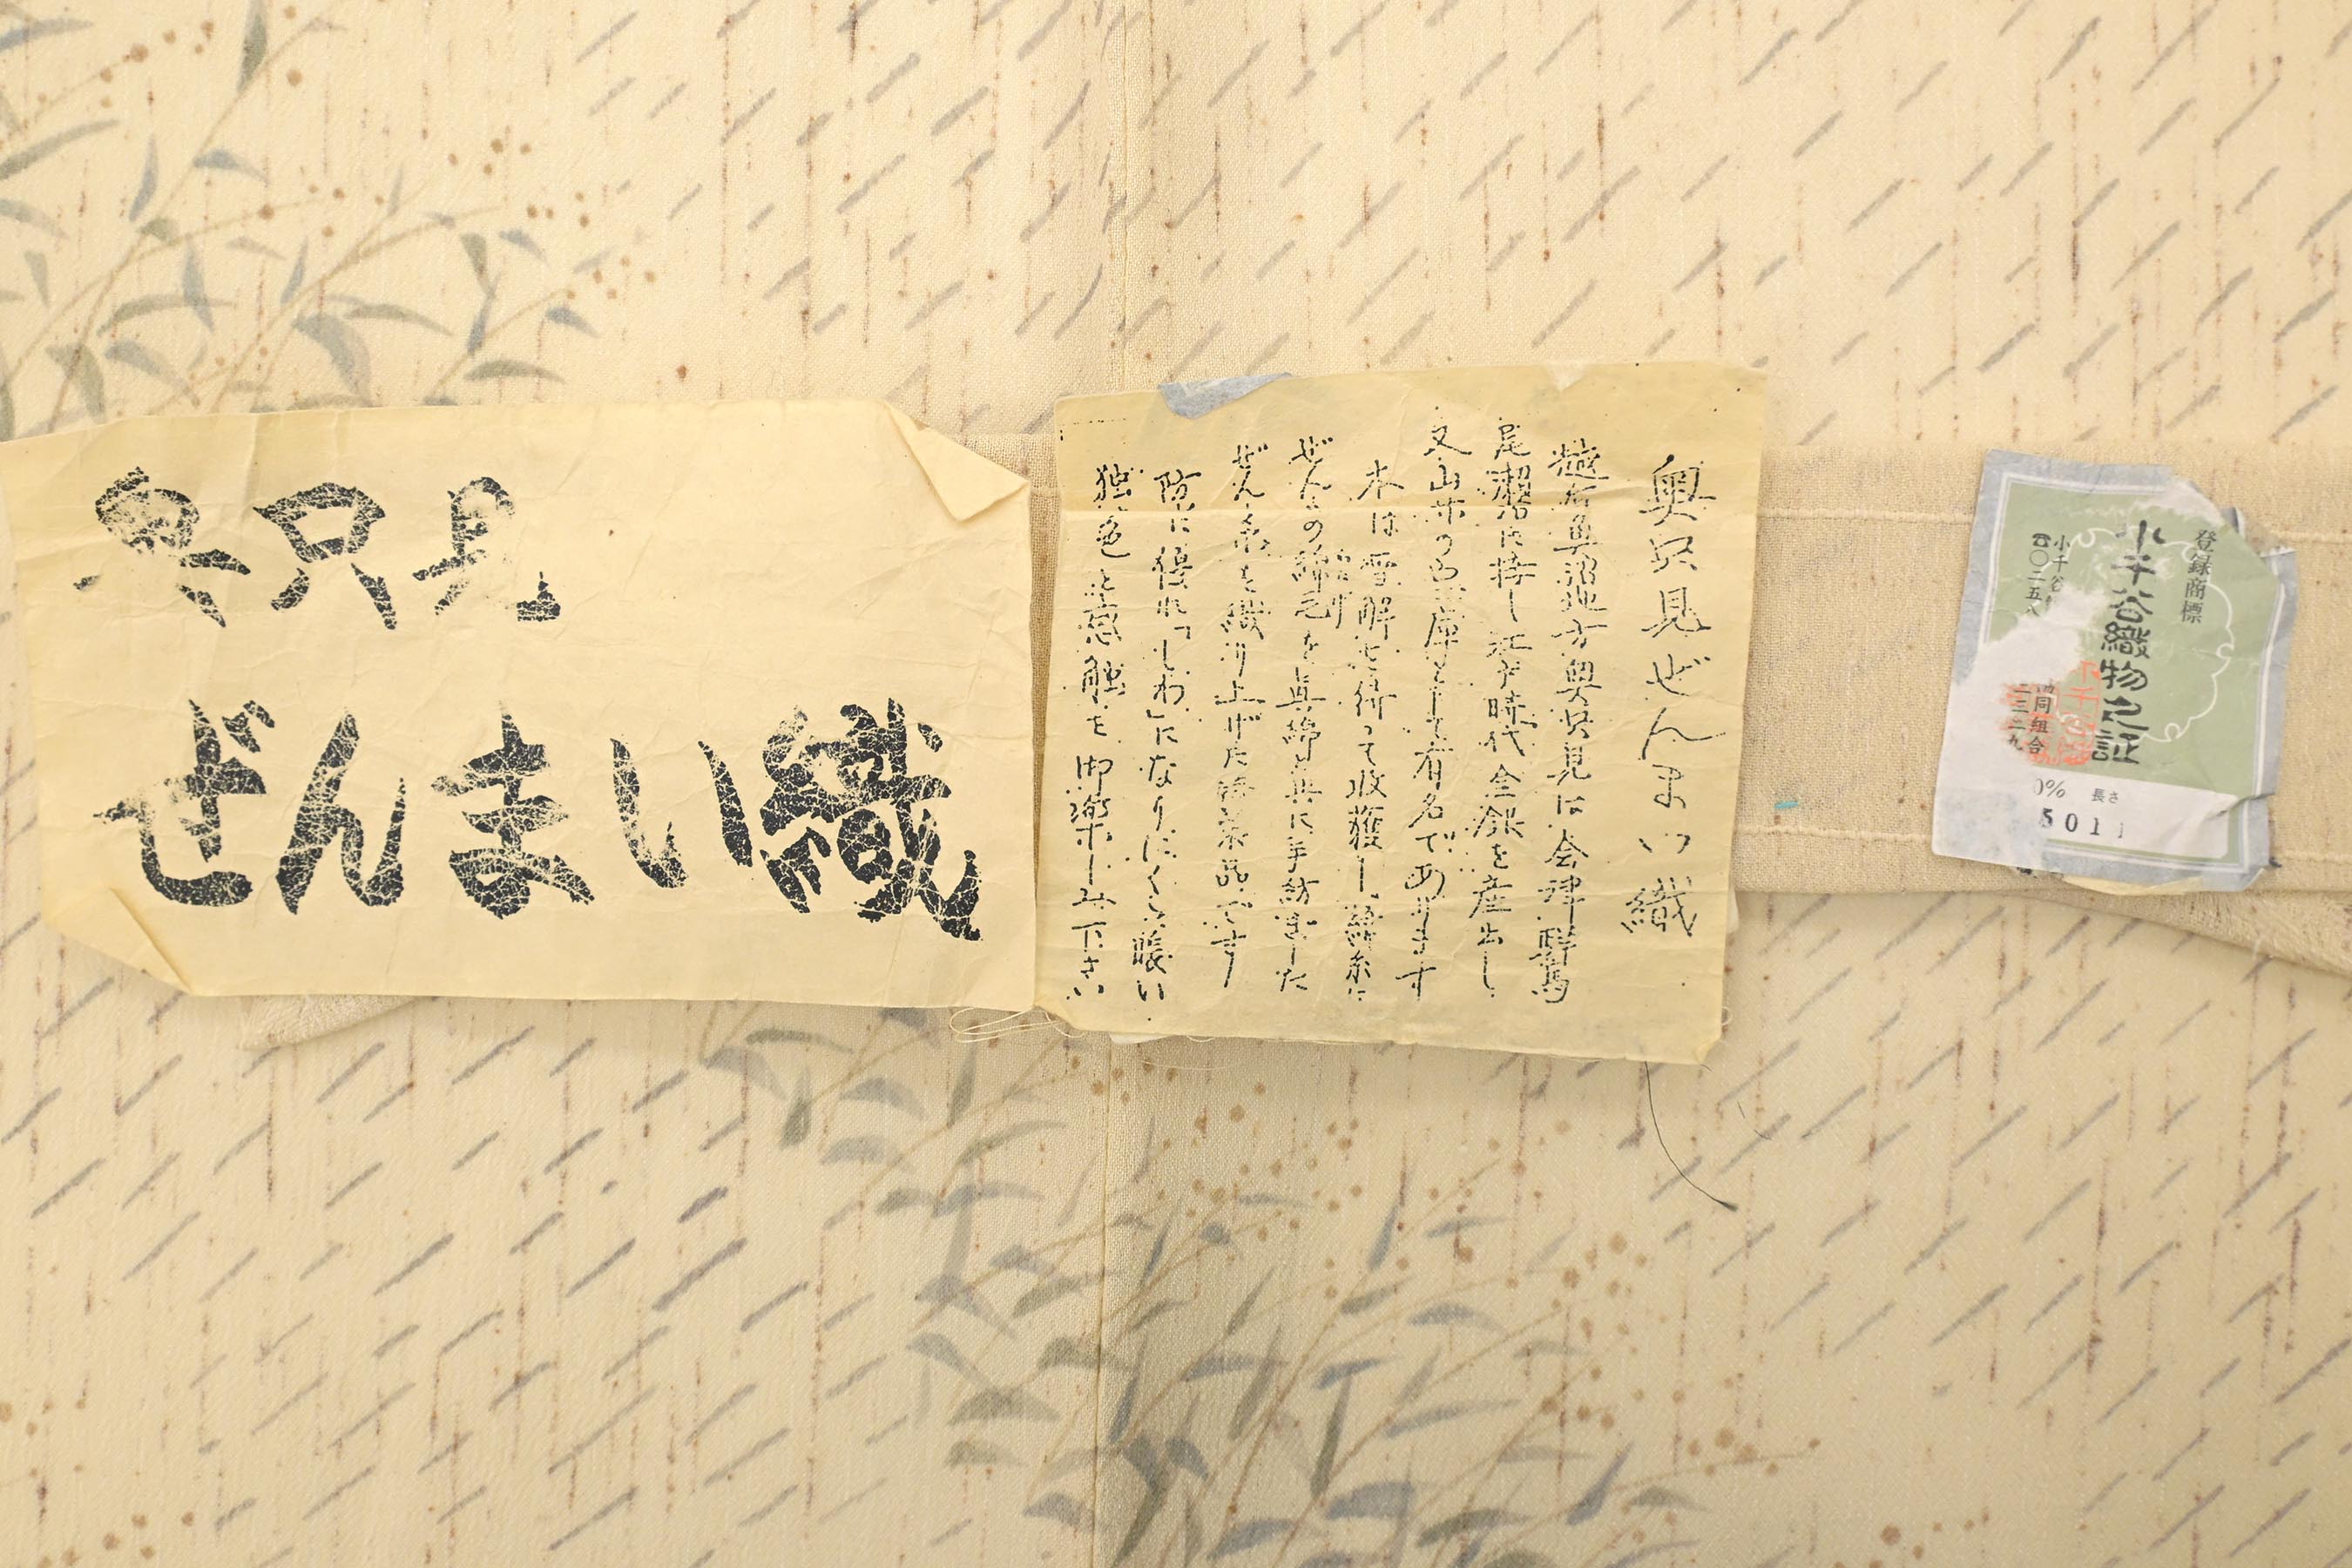 奥只見
ぜんまい織
奥只見ぜんまい織
越后魚沼地方奥只見は会津群馬
尾瀬に接し江戸時代金銀を産出し
又山菜の宝庫として有名であります
本は雪解を待って収獲し綿糸に
ぜんまの綿毛を真綿と共に手紡ぎした
ぜん糸を織り上げた
防に優れ「しわ」になりにくく暖い
独色と感触を御楽しみ下さい
登録商標
小千谷織物之証
小千谷
同組合
☎〇二五八
二三二九
0% 長さ
5011